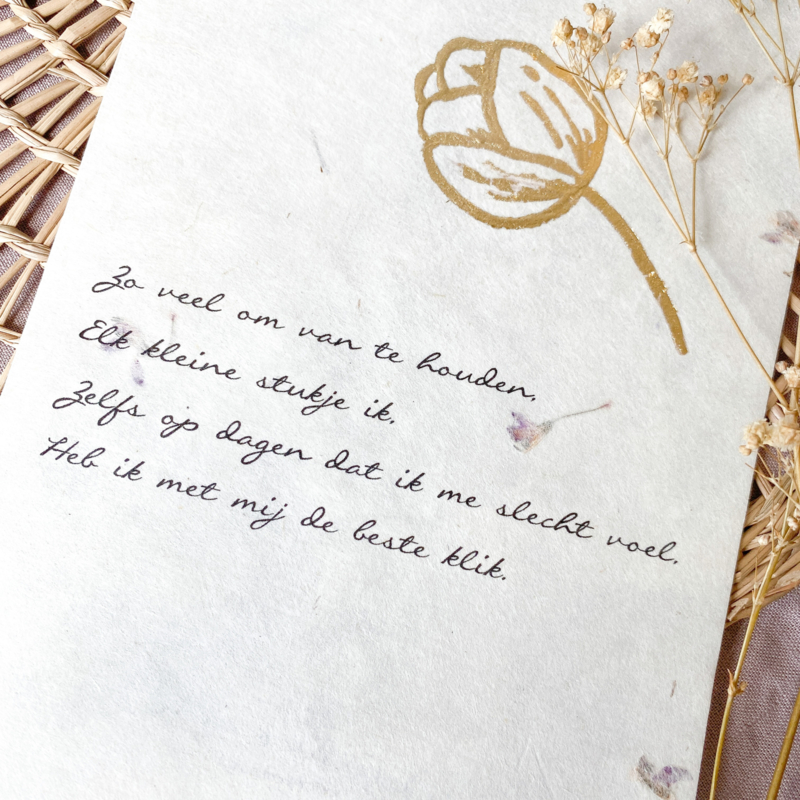 Zo veel om van te houden.
Elk kleine stukje ik.
Zelfs op dagen dat ik me slecht voel.
Heb ik met mij de beste klik.